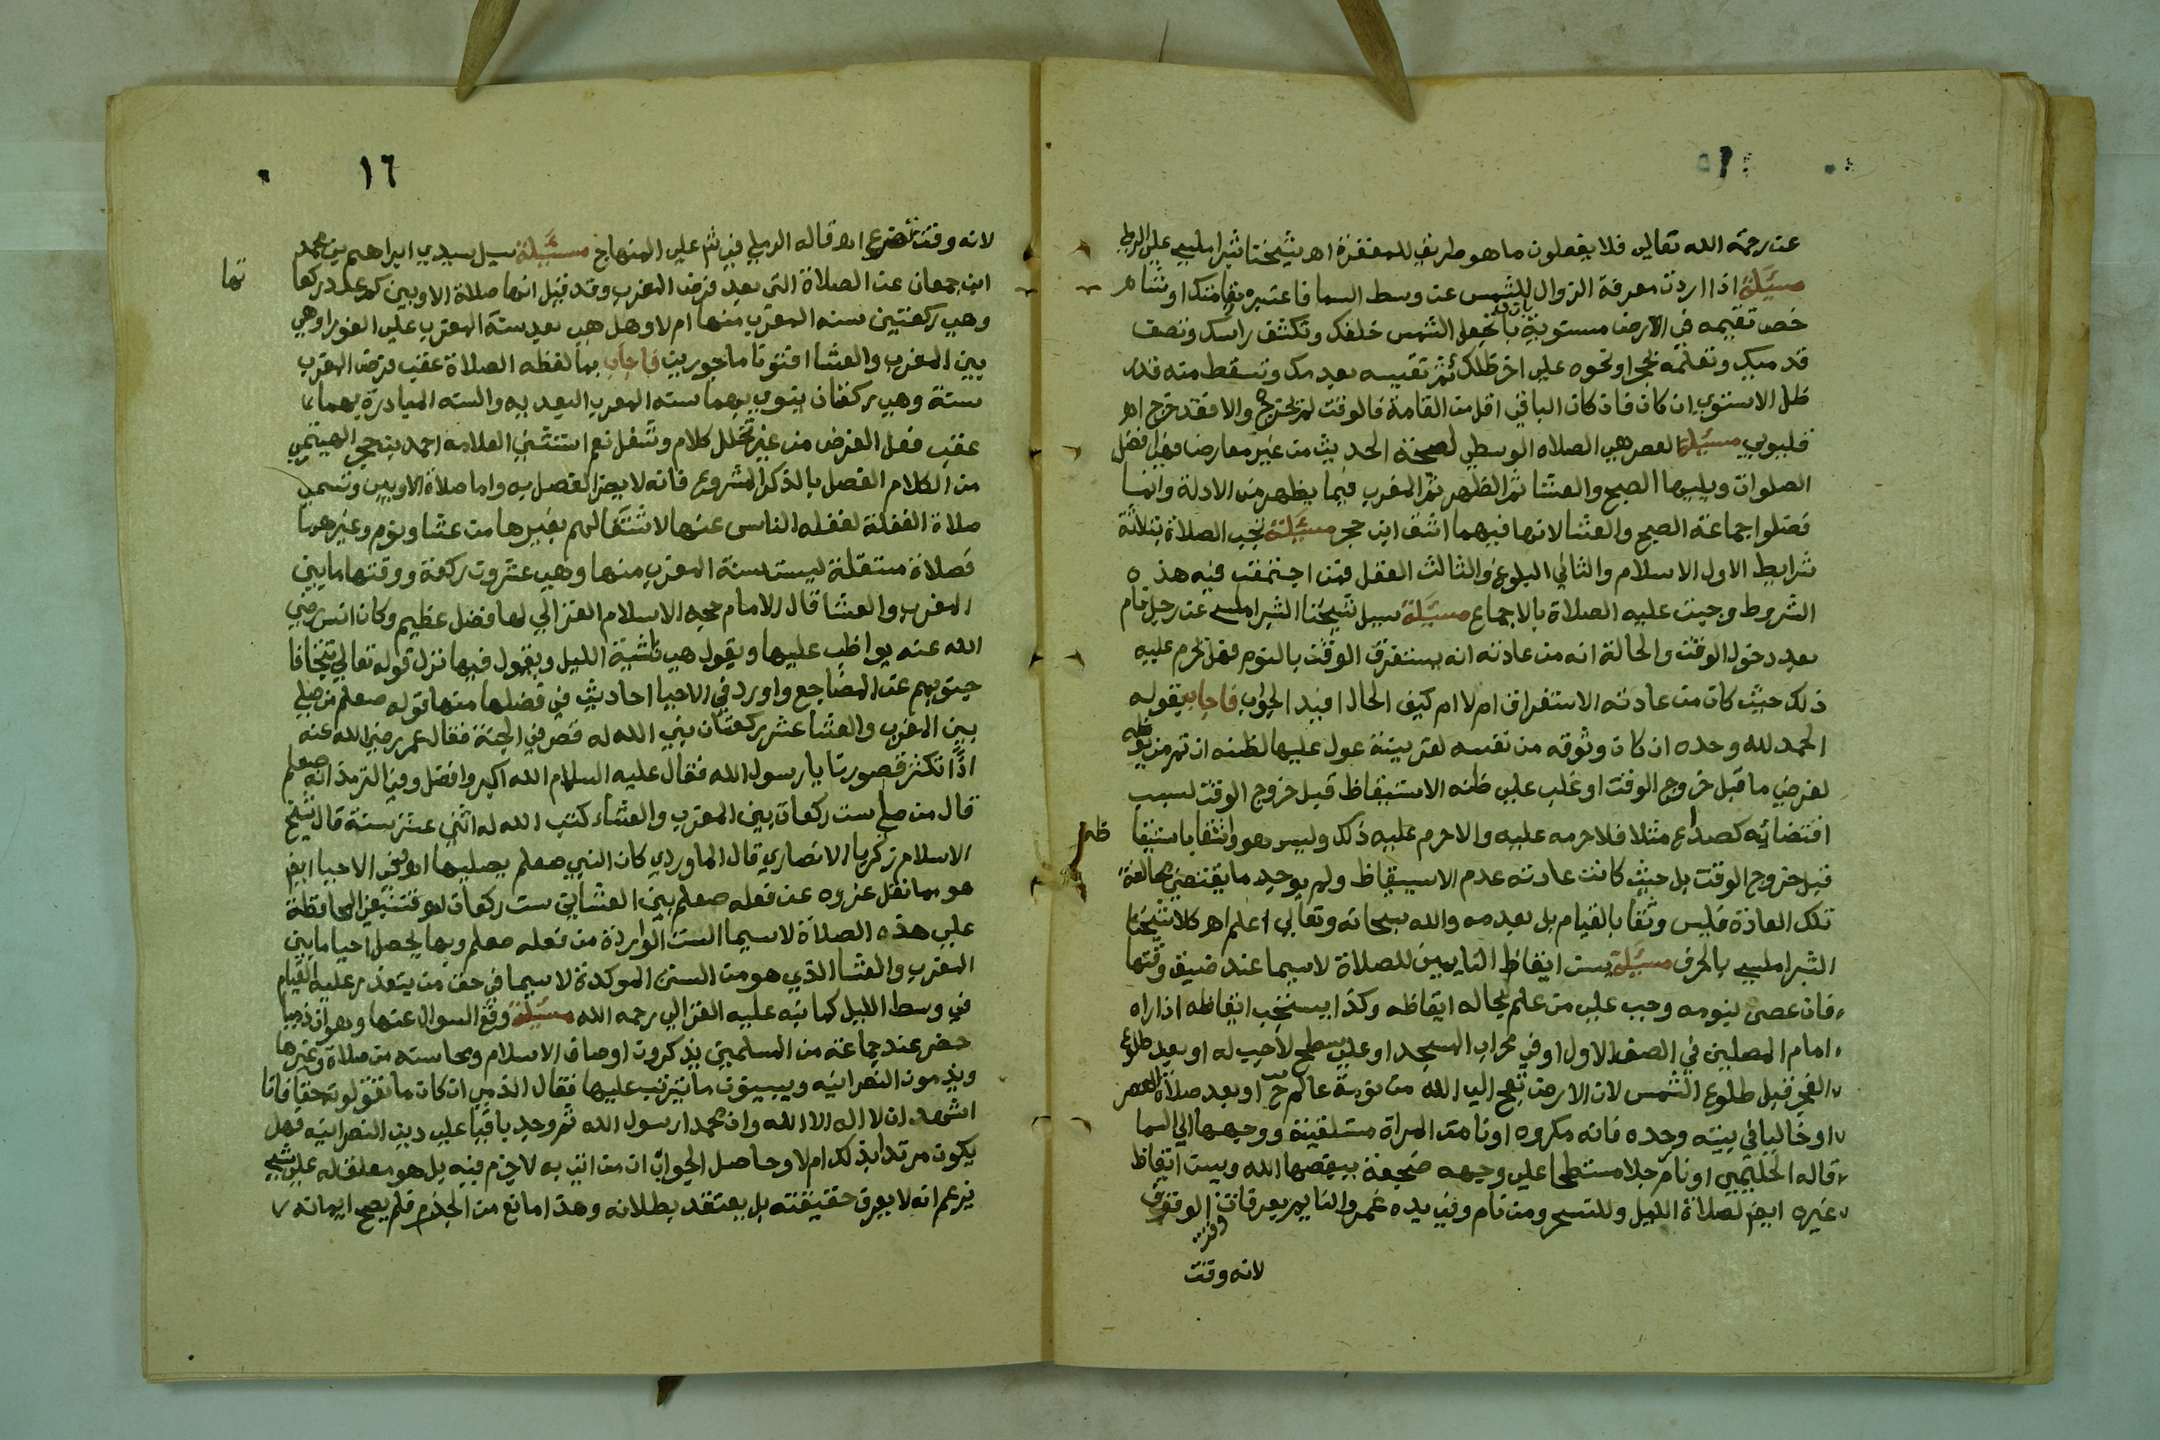 ١٥
عن رحمة الله تعالى فلا يفعلون ما هو طريق للمغفرة اهـ شيخنا شبراملسي على الرملي
مسئلة اذا اردت معرفة الزوال للشمس عن وسط السما فاعتبره بقامتك او شاهر
خص تقيمه في الارض مستوية بان تجعل الشمس خلفك وتكشف راسك ونصف
قدميك وتعلمه بحجر او نحوه على اخر ظلك ثم تقيسه بقدمك وتسقط منه قدر
ظل الاستوى ان كان فان كان الباقي اقل من القامة فالوقت لم يخرج والا فقد خرج اهـ
قليوبي مسئلة العصر هي الصلاه الوسطي لصحة الحديث من غير معارض فهي افضل
الصلوات ويليها الصبح والعشا ثم الظهر ثم المغرب فيما يظهر من الادلة وانما
فضلوا جماعة الصبح والعشا لانها فيهما اشق ابن حجر مسئلة تجب الصلاة بثلاثة
شرايط الاول الاسلام والثاني البلوغ والثالث العقل فمن اجتمعت فيه هذه
الشروط وجبت عليه الصلاة بالاجماع مسئلة سيل شيخنا الشبراملسي عن رجل نام
بعد دخول الوقت والحالة انه من عادته انه يستغرق الوقت بالنوم فهل يحرم عليه
ذلك حيث كان من عادته الاستغراق ام لا ام كيف الحال افيد الجواب فاجاب بقوله
الحمد لله وحده ان كان وثوقه من نفسه لقربينة عول عليها لظنه ان ثم من يوقظه
لغرض ما قبل خروج الوقت او غلب على ظنه الاستيقاظ قبل خروج الوقت لسبب
اقتضائه كصداع مثلا فلا حرمه عليه والا حرم عليه ذلك وليس هو واثقا باستيقا ظه
قبل خروج الوقت بل حيث كانت عادته عدم الاسيقاظ ولم يوجد ما يقتضي مخالفة
تلك العادة فليس وثقا بالقيام بل بعدمه والله سبحانه وتعالى اعلم اهـ كلام شيخنا
الشبراملسي بالحرف مسئلة يسن ايقاظ النايمين للصلاة لاسيما عند ضيق وقتها
فان عصى بنومه وجب على من علم بحاله ايقاظه وكذا يستحب ايقاظه اذا راه
امام المصلين في الصف الاول او في محراب المسجد او على سطح لا حجب له او بعد طلوع
الفجر قبل طلوع الشمس لان الارض تعج الى الله من نومة عالم ح او بعد صلاة العصر
او خاليا في بيته وحده فانه مكروه او نامت المراة مستلقية ووجهها الى السما
قاله الحليمي او نام رجلا مستطحا على وجهه ضجعة يبغضها الله ويسن ايقاظ
غيره ايض لصلاة الليل وللتسحر ومن نام وفي يده غمر والنايم بعرفات في الوقوف
وقت
لانه وقت
١٦
لانه وقت تضرع اهـ قاله الرملي في شم على المنهاج مسئلة سيل سيدي ابراهيم بن محمد
ابن جمعان عن الصلاة التي بعد فرض المغرب وقد قيل انها صلاة الاوبين كم عدد ركعا تها
وهي ركعتين سنه المغرب منها ام لا وهل هي بعد سنة المغرب على الفور او هي
بين المغرب والعشا افتونا ماجورين فاجاب بما لفظه الصلاة عقب فرض المغرب
سنة وهي ركعتان ينوي بهما سنه المغرب البعديه والسنه المبادرة بهما
عقب فعل الفرض من غير تخلل كلام وشغل نعم استثنى العلامه احمد بن حجر الهيتمي
من الكلام الفصل بالذكر المشروع فانه لا يضر الفصل به واما صلاة الاوبين وتسمى
صلاة الغفلة لغفله الناس عنها لاشتغالهم بغيرها من عشا ونوم وغيرهما
فصلاة مستقلة ليست سنة المغرب منها وهي عشرون ركعة ووقتها ما بين
المغرب والعشا قال الامام حجه الاسلام الغزالي لها فضل عظيم وكان انس رضي
الله عنه يواظب عليها ويقول هي ناشية الليل ويقول فيها نزل قوله تعالي تتجافا
جنوبهم عن المضاجع واورد في الاحيا احاديث في فضلها منها قوله صعلم من صلى
بين المغرب والعشا عشر ركعتان بنى الله له قصر في الجنة فقال عمر رضي الله عنه
اذًا تكثر قصورنا يا رسول الله فقال عليه السلام الله اكبر وافضل وفي الترمذ انه صعلم
قال من صلى ست ركعات بين المغرب والعشاء كتب الله له اثني عشر سنة قال شيخ
الاسلام زكريا الانصاري قال الماوردي كان النبي صعلم يصليها اهـ وفي الاحيا ايض
هو مما نقل عزوه عن فعله صعلم بين العشاين ست ركعات اهـ فتنبغي المحافظة
على هذه الصلاة لاسيما الست الواردة من فعله صعلم وبها يحصل احيا ما بين
المغرب والعشا الذي هو من السنن الموكدة لاسيما في حق من يتعذر عليه القيام
في وسط الليل كما نبه عليه الغزالي رحمه الله مسئلة وقع السوال عنها وهو ان ذميا
حضر عند جماعة من المسلمين يذكرون اوصاف الاسلام ومحاسنه من صلاة وغيرها
ويذمون النصرانيه ويبينون ما يترتب عليها فقال الذمي ان كان ما تقولونه حقا فانا
اشهد ان لا اله الا الله وان محمدا رسول الله ثم وجد باقيا على دين النصرانيه فهل
يكون مرتدا بذلك ام لا وحاصل الجواب ان من اتى به لا جزم فيه بل هو معلق له على شي
يزعم انه لا يعرف حقيقته بل يعتقد بطلانه وهذا مانع من الجزم فلم يصح ايمانه